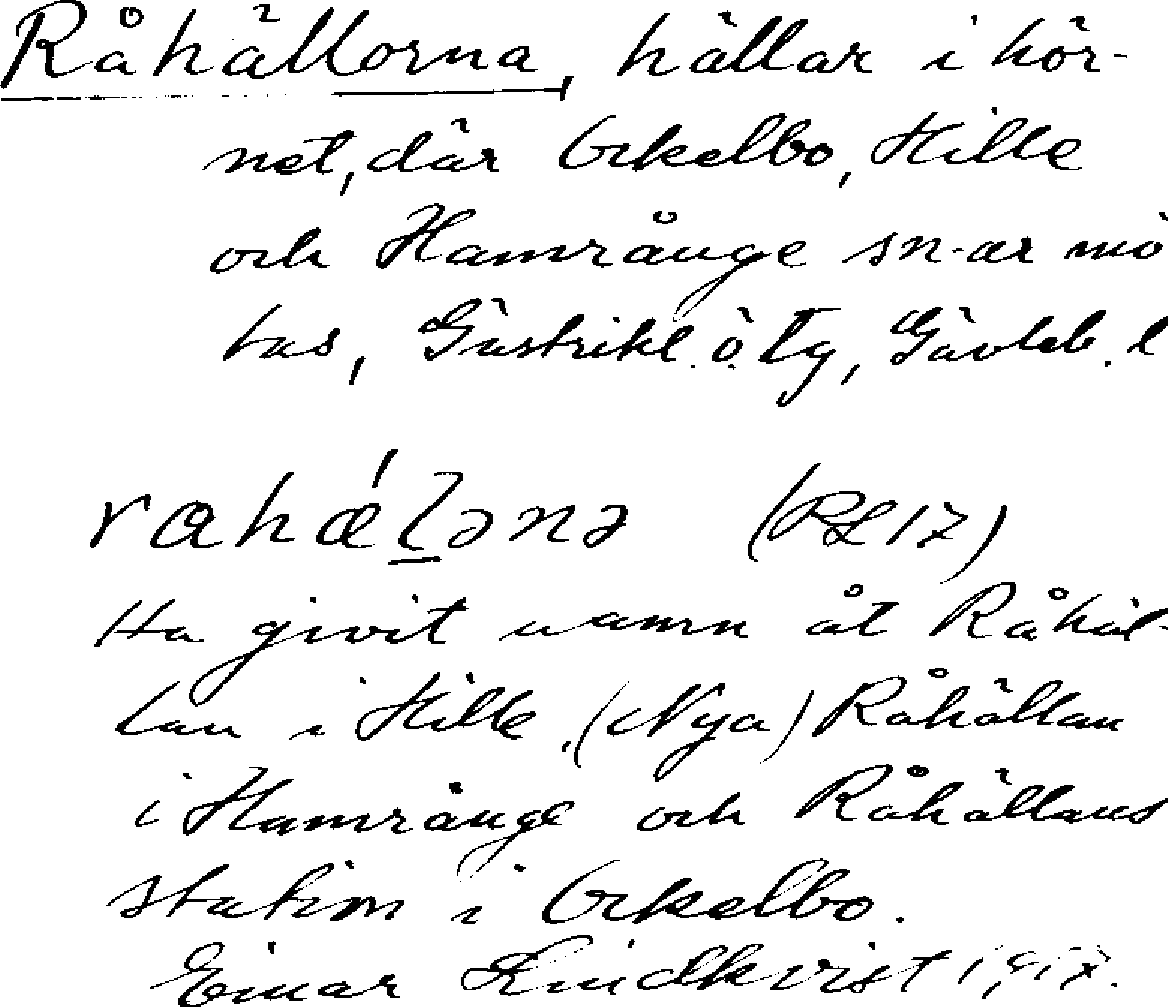 Råhällorna, hällar i hör-
net, där Ockelbo, Hille
och Hamrånge sn-ar mö
tas, Gästrikl. ö. Tg, Gävleb. l
rahǽlənə (RL 17)
Ha givit namn åt Råhäl-
lan i Hille, (Nya) Råhällan
i Hamrånge och Råhällans
station i Ockelbo.
Einar Lindkvist 1917.